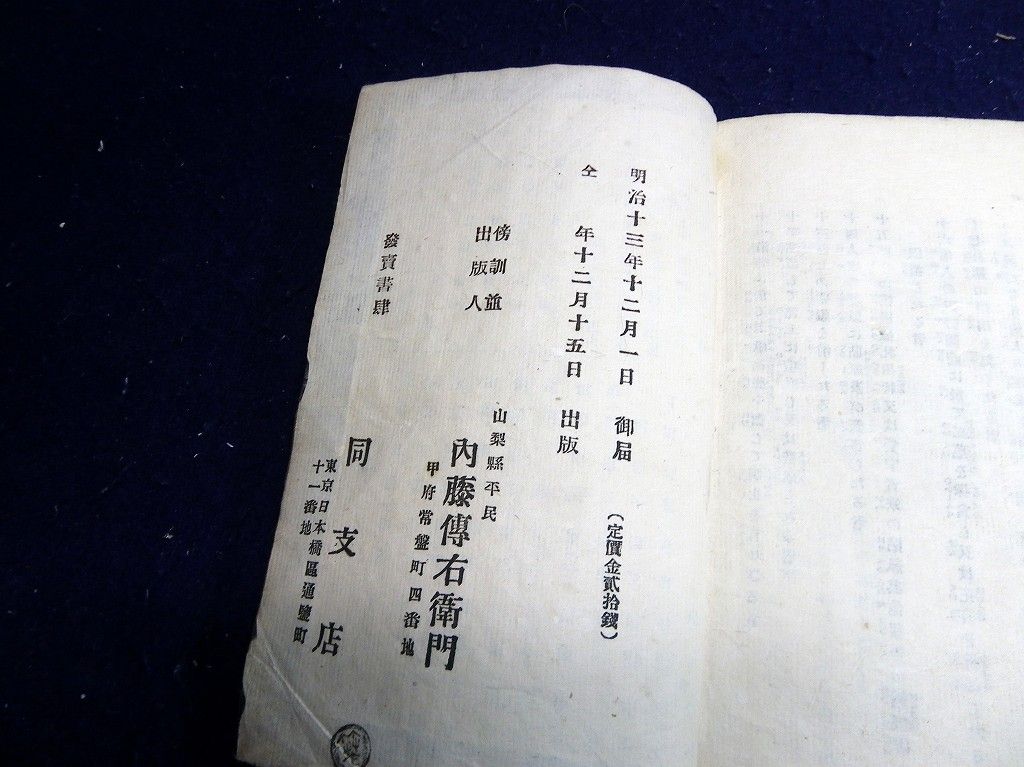 明治十三年十二月一日 御届
(定價金貳拾錢)
仝 年十二月十五日 出版
傍訓並
出版人
山梨縣平民
內藤傳右衛門
甲府常盤町四番地
發賣書肆
同支店
東京日本橋區通鹽町
十一番地